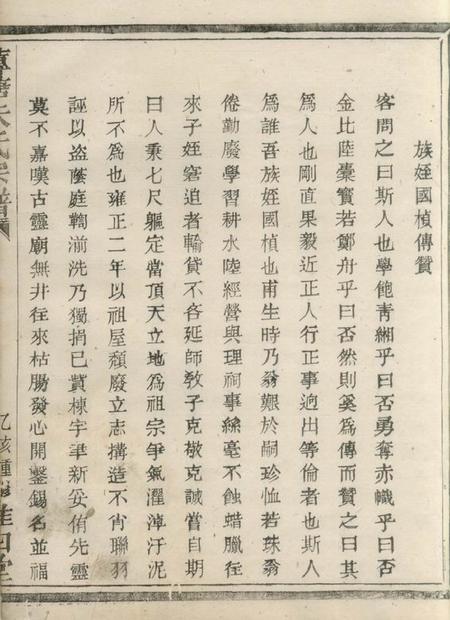 族姪國楨傳贊
客問之曰斯人也學飽青緗乎曰否勇奪赤幟乎曰否
金比陸橐寳若鄭舟乎曰否然則奚為傳而贊之曰其
為人也剛直果毅近正人行正事逈出等倫者也斯人
為誰吾族姪國楨也甫生時乃翁艱於嗣珍恤若珠翁
倦勤廢學習耕水陸經營與理祠事絲毫不蝕蜡臘往
來子姪窘迫者輸貸不吝延師敎子克敬克誠嘗自期
曰人秉七尺軀定當頂天立地為祖宗爭氣濯淖汙泥
所不為也雍正二年以祖屋頽廢立志搆造不肖聯羽
誣以盗蔭庭鞫湔洗乃獨捐已貲棟宇聿新妥侑先靈
莫不嘉嘆古靈廟無井往來枯腸發心開鑿錫名並福
乙亥重修